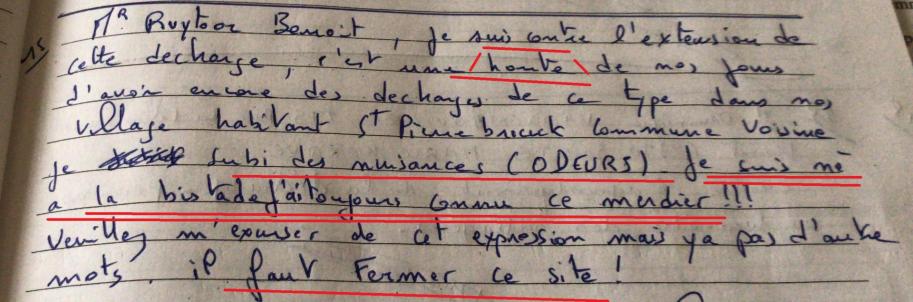 15) MR Ruytoor Benoit, je suis contre l'extension de
cette decharge, c'est une honte de nos jours
d'avoir encore des decharges de ce type dans nos
village habitant St Pierrebrouck Commune Voisine
je subi des nuisances (ODEURS) Je suis né
a la bistade j'ai toujours connu ce merdier !!!
Veuillez m'excuser de cet expression mais ya pas d'autre
mots, il faut Fermer ce site !